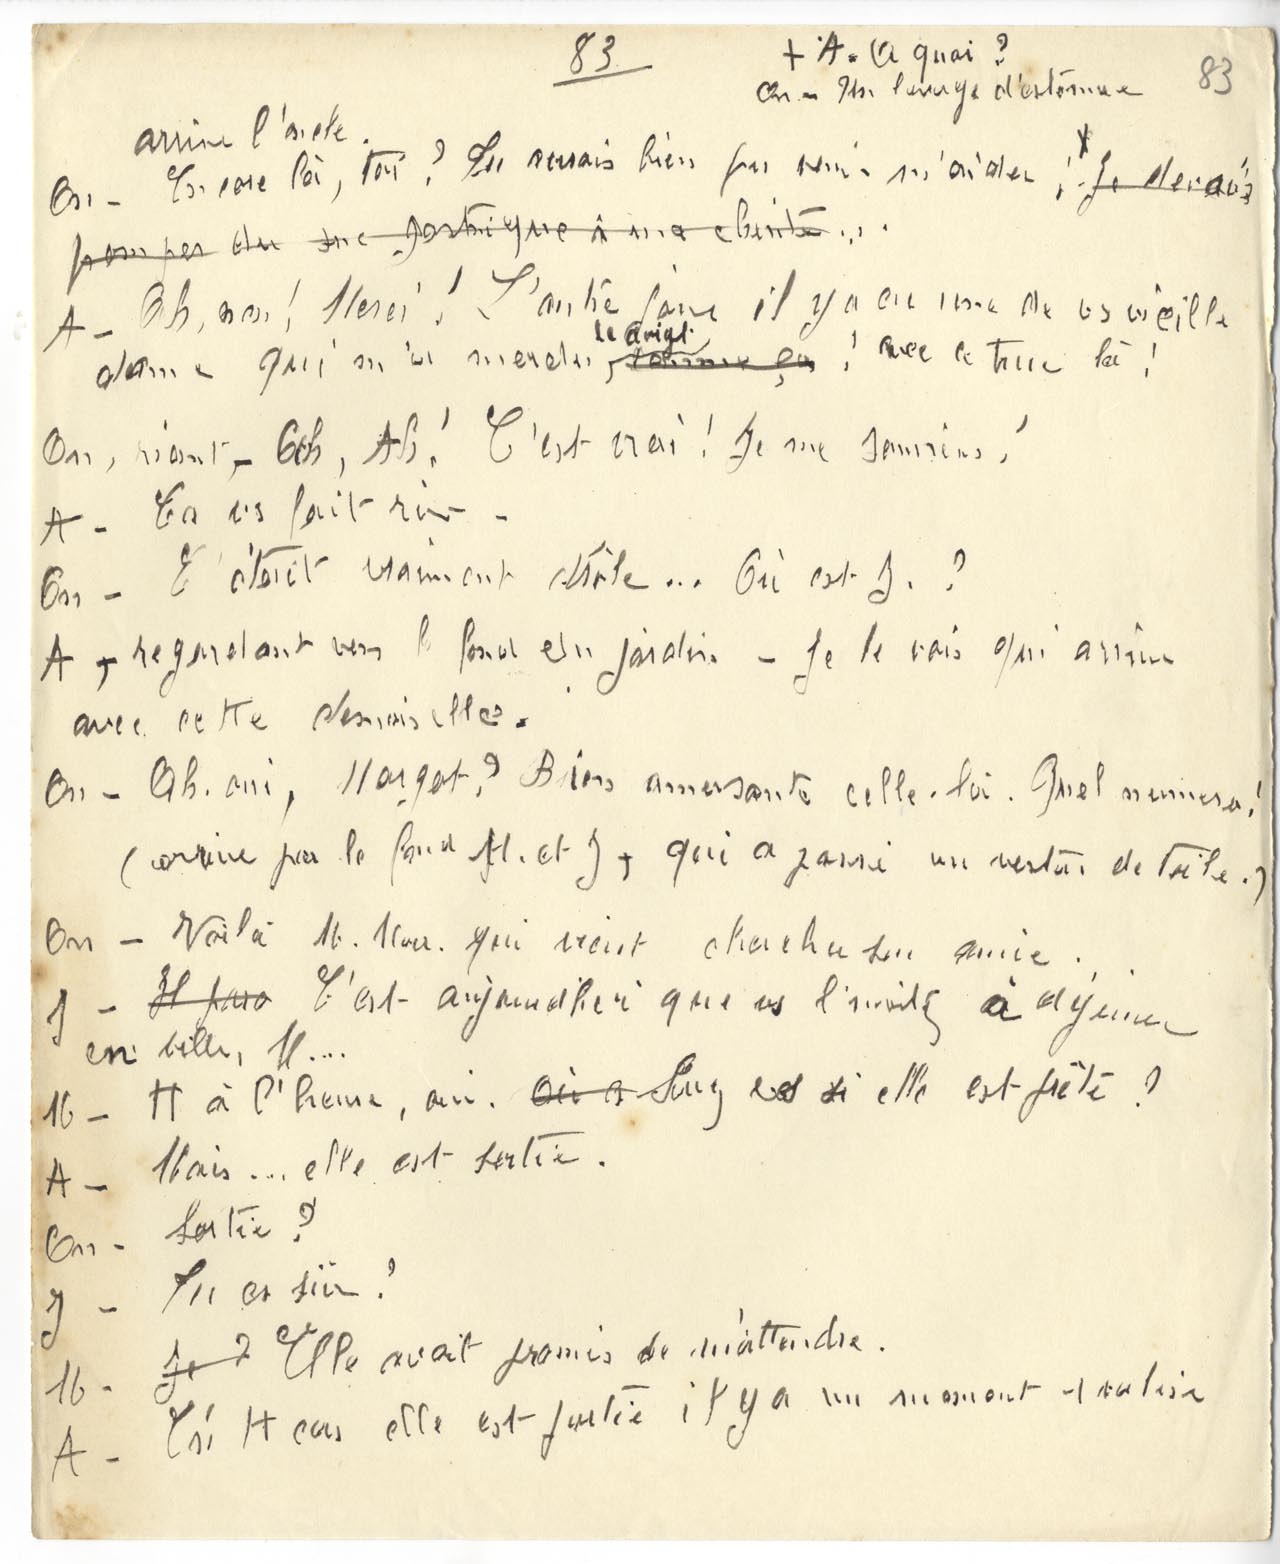 83
+ A. A quoi ?
83
On - Un lavage d'estomac
arrive l'oncle.
On - Encore là, toi ? Tu aurais bien pu venir m'aider ! + Je devais
pomper du suc gastrique à ma cliente...
A - Oh, non ! Merci ! L'autre jour il y a eu une de vs vieille
le doigt
dame qui m'a mordu, comme ça ! avec ce truc là !
On, riant, - Ah, Ah ! C'est vrai ! Je me souviens !
A - Ca vs fait rire -
On - C'était vraiment drôle... Où est J. ?
A, regardant vers le fond du jardin - Je le vois qui arrive
avec cette demoiselle.
On - Ah. oui, Margot ? Bien amusante celle-là. Quel numéro !
(arrive par le fond M. et J, qui a passé un veston de toile.)
On - Voilà M. Mar. qui vient chercher son amie.
J - Il para C'est aujourd'hui que vs l'invitez à déjeuner
en ville, M....
M - Tt à l'heure, oui. Où a Savez vs si elle est prête ?
A - Mais... elle est sortie.
On - Sortie ?
J - Tu es sûr ?
M - Je ? Elle avait promis de m'attendre.
A - En tt cas elle est partie il y a un moment